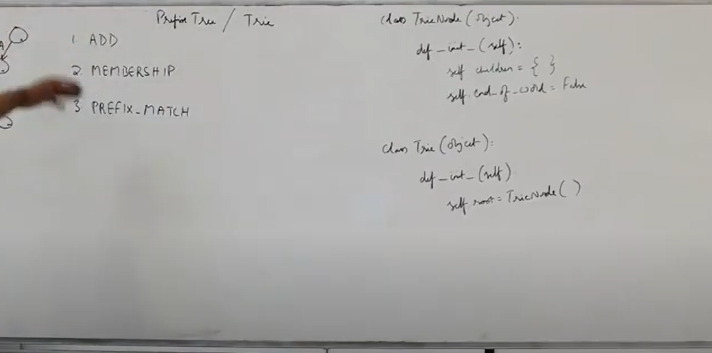 Prefix Tree / Trie
1. ADD
2. MEMBERSHIP
3. PREFIX_MATCH
A
class TrieNode (object):
def _init_ (self):
self children = { }
self.end_of_word = False
class Trie (object):
def _init_ (self)
self root = TrieNode ( )